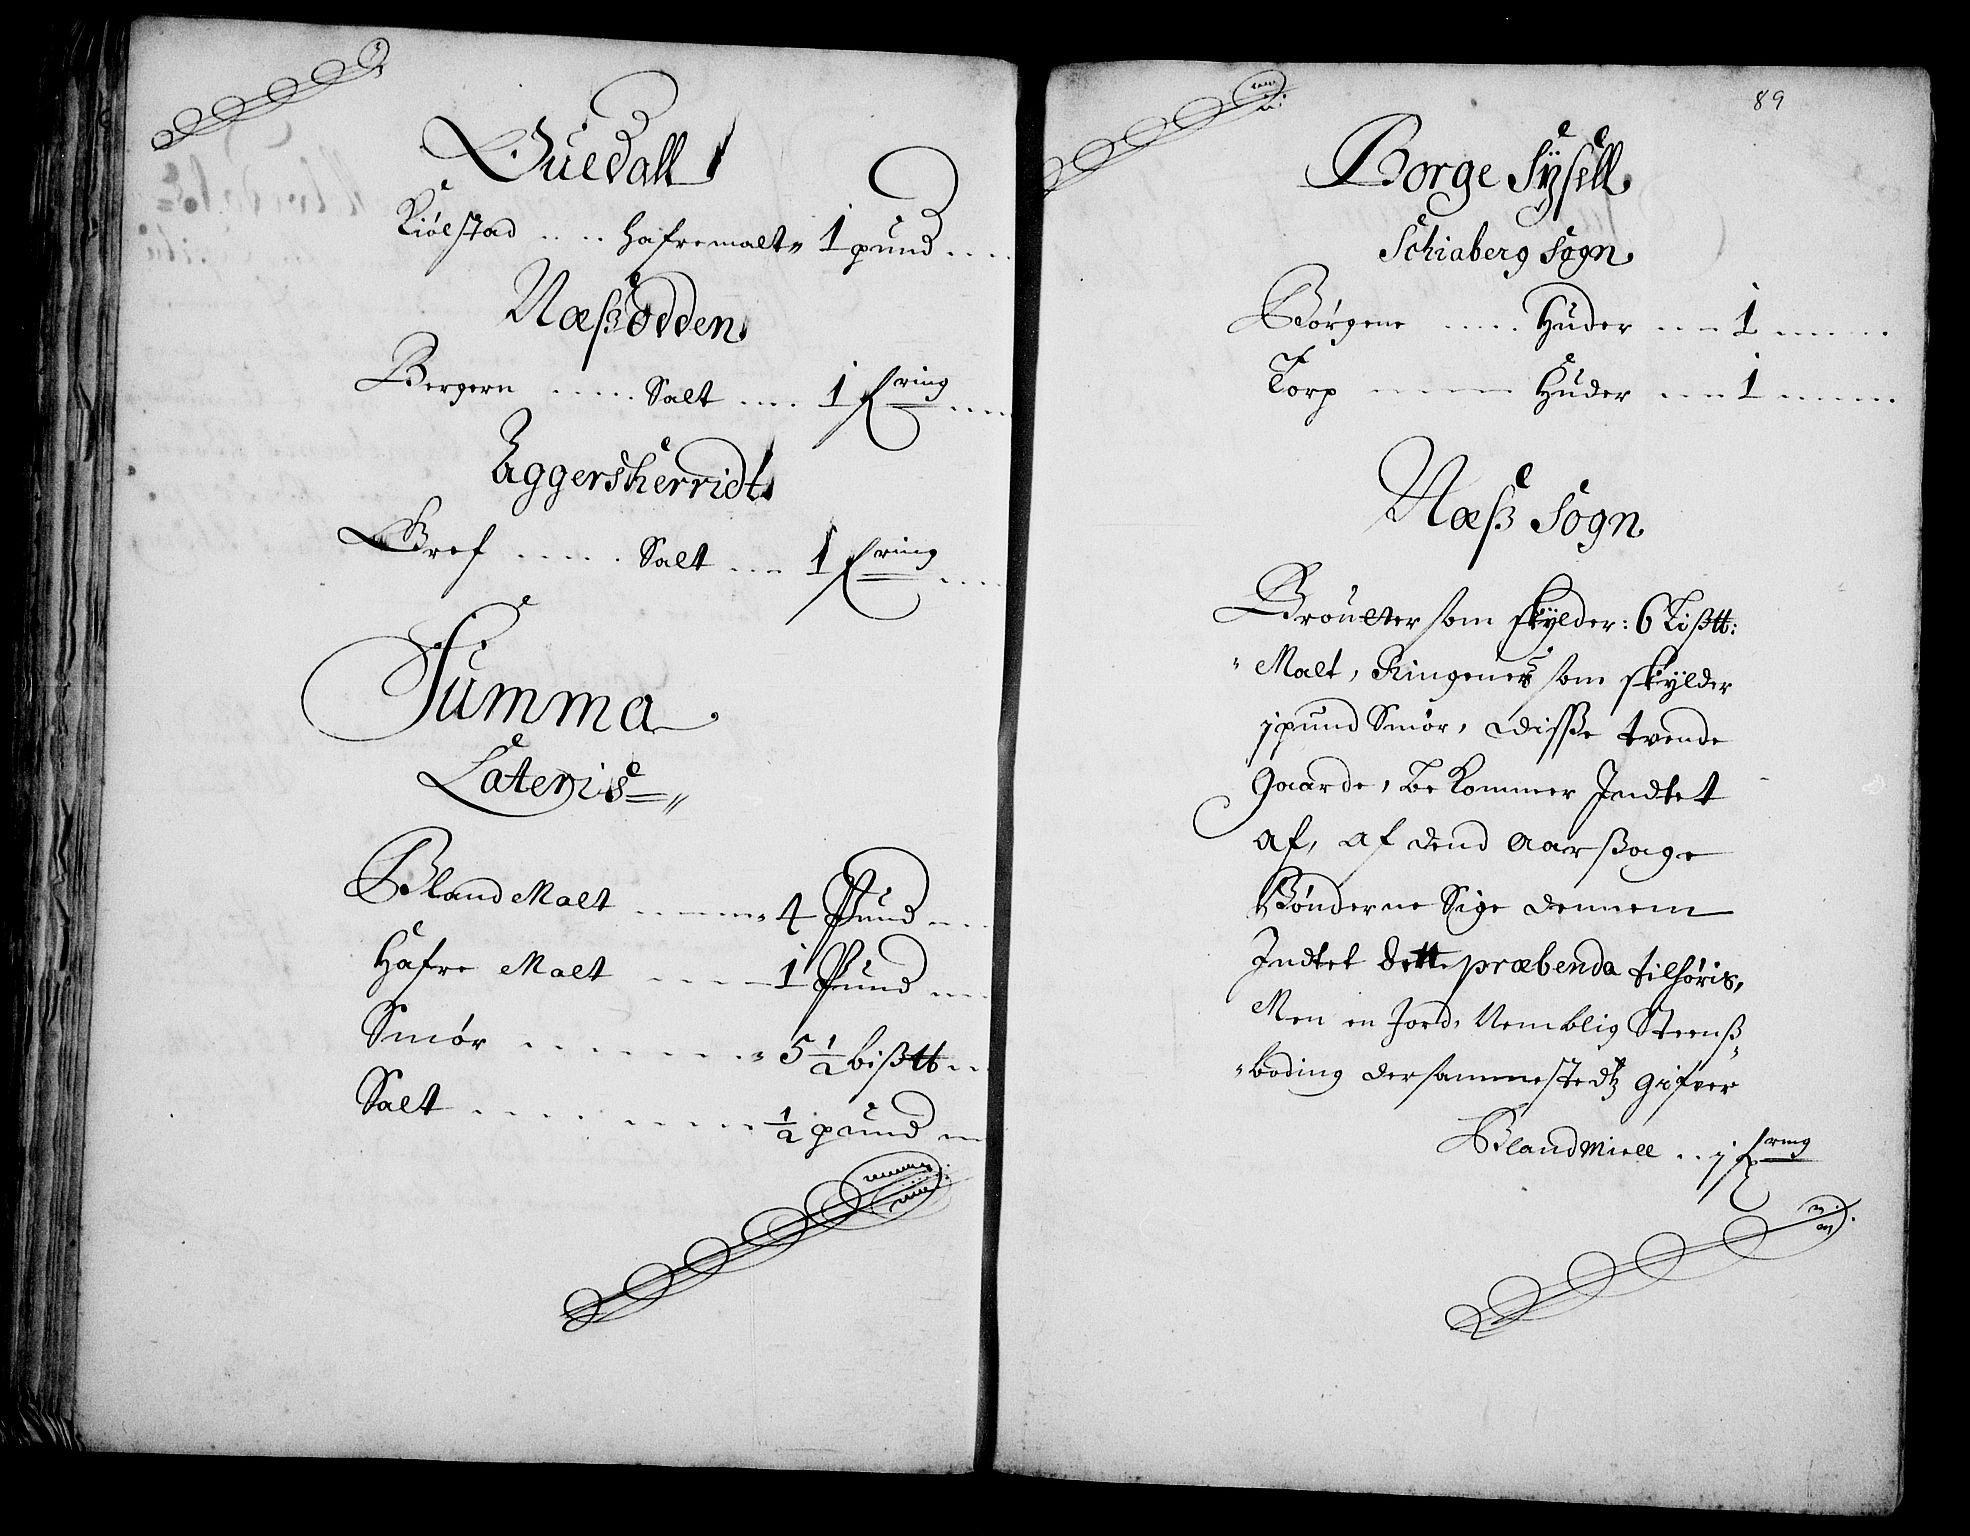 Guedall
Kiølstad .. .. hafremalt 1 pund ....
Næßodden
Bergern ..... Salt .... 1 fring ....
Aggersherridt
Gref ..... Salt ... 1 fring ....
Summa
Lateris
Bland Malt ...... 4 Pund ...
Hafre Malt ..... 1 Pund ...
Smør ........ 5 1/2 bißtt ..
Salt ......... 1/2 pund ...
89
Borge Sÿsell
Schiaberg Sogn
Børgene ..... Huder ... 1 .....
Torp ..... Huder ... 1 .....
Næß Sogn
Broulter som skylder: 6 Lißtt:
Malt, Ringenes som skylder
j pund Smør, disse tvende
Gaarde, be kommer Indtet
af, af dend aarsage
Bønderne Sige dennem
Indtet dette præbenda tilhøris,
Men en Jord, Nemblig Steenß
boding dersammestedtz gifver
Blandmiell .. j fring